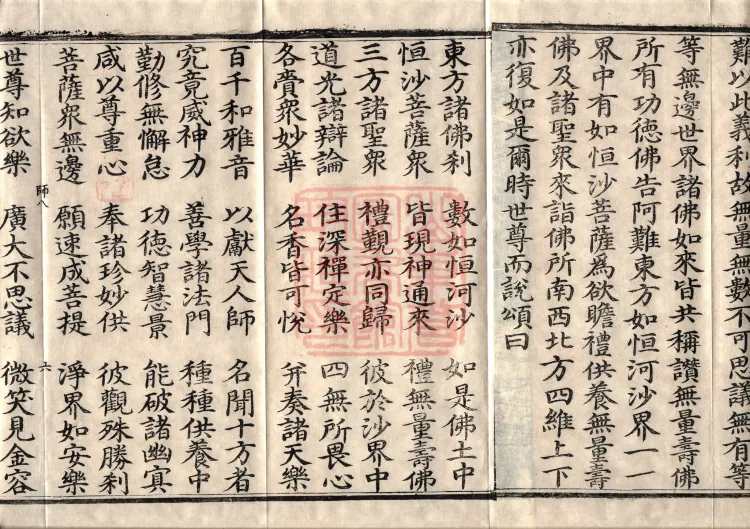 難以此義利故無量無數不可思議無有等
等無邊世界諸佛如來皆共稱讚無量壽佛
所有功德佛告阿難東方如恒河沙界一一
界中有如恒沙菩薩為欲瞻禮供養無量壽
佛及諸聖衆來詣佛所南西北方四維上下
亦復如是爾時世尊而說頌曰
東方諸佛刹 數如恒河沙 如是佛土中
恒沙菩薩衆 皆現神通來 禮無量壽佛
三方諸聖衆 禮觀亦同歸 彼於沙界中
道光諸辯論 住深禪定樂 四無所畏心
各賫衆妙華 名香皆可悅 并奏諸天樂
百千和雅音 以獻天人師 名聞十方者
究竟威神力 善學諸法門 種種供養中
勤修無懈怠 功德智慧景 能破諸幽冥
咸以尊重心 奉諸珍妙供 彼觀殊勝刹
菩薩衆無邊 願速成菩提 淨界如安樂
師八 六
世尊知欲樂 廣大不思議 微笑見金容